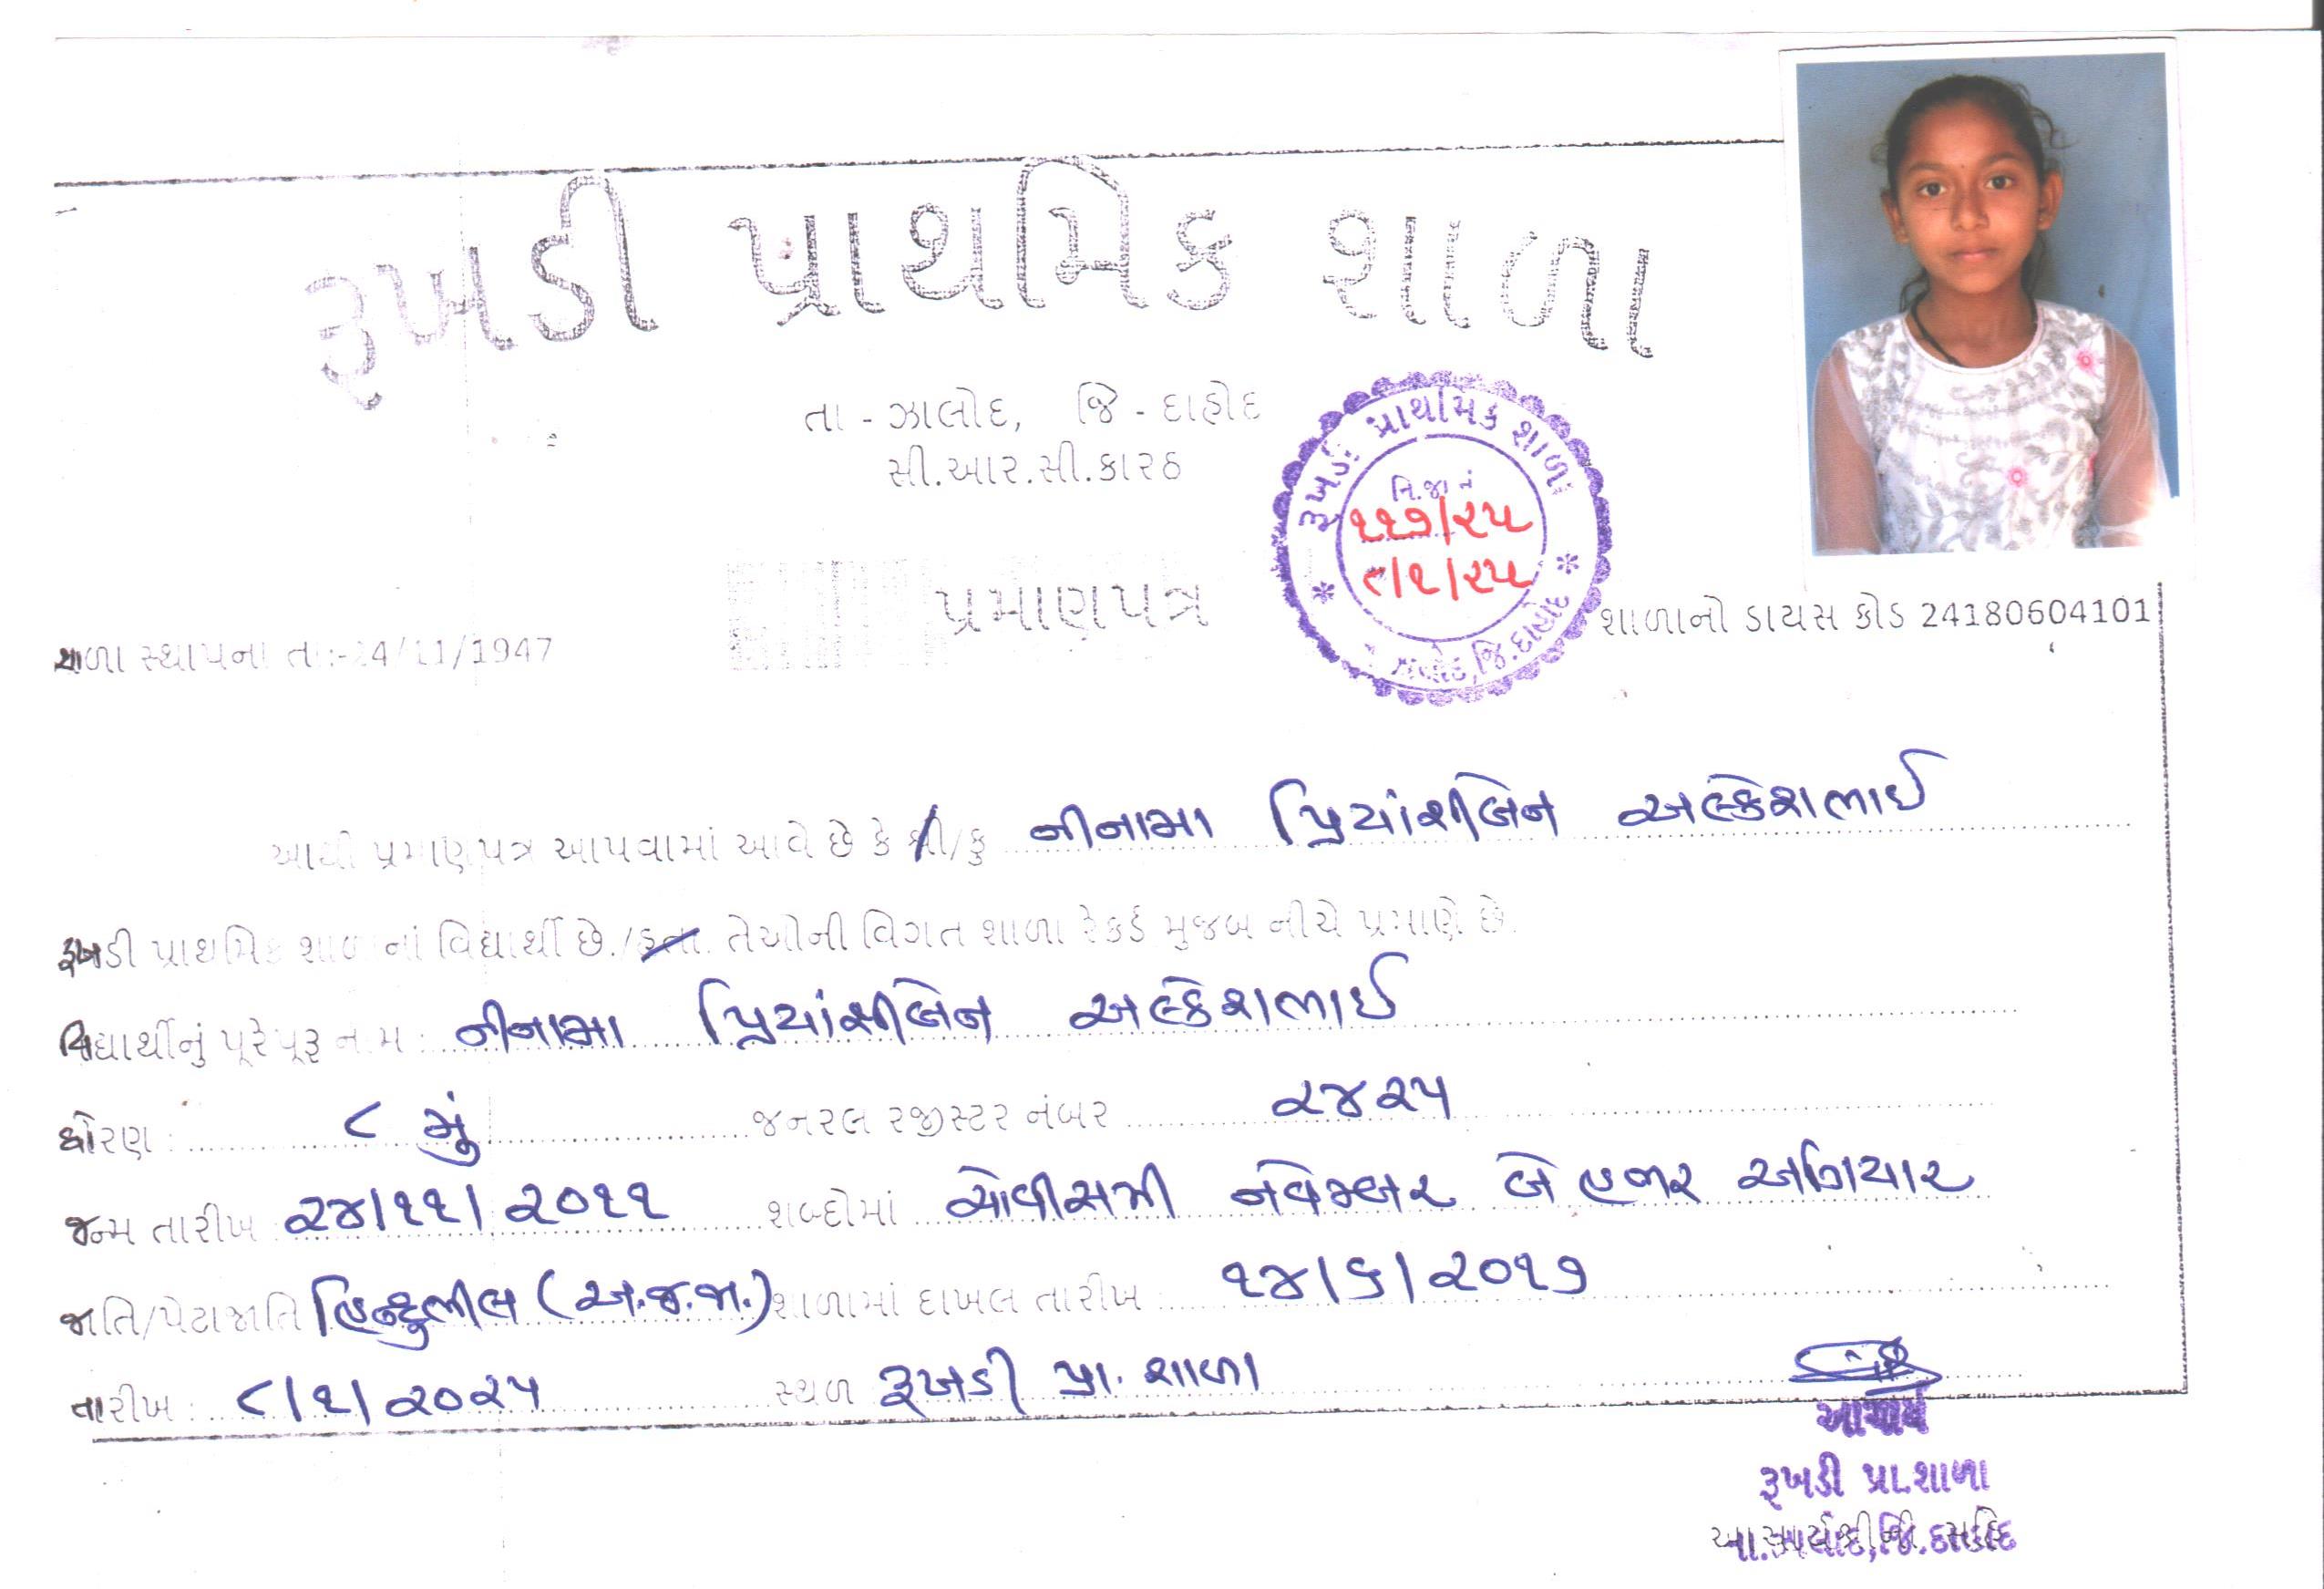 રૂખડી પ્રાથમિક શાળા
તા - ઝાલોદ, જિ - દાહોદ
સી.આર.સી.કારઠ
રૂખડી પ્રાથમિક શાળા
નિ.જા નં
૧૧૭/૨૫
૮/૧/૨૫
ઝાલોદ, જિ.દાહોદ
પ્રમાણપત્ર
શાળા સ્થાપના તા:-24/11/1947
શાળાનો ડાયસ કોડ 24180604101
આથી પ્રમાણપત્ર આપવામાં આવે છે કે શ્રી/કુ નીનામા પ્રિયાંશીબેન અલ્કેશભાઈ
રૂખડી પ્રાથમિક શાળાનાં વિદ્યાર્થી છે./હતા. તેઓની વિગત શાળા રેકર્ડ મુજબ નીચે પ્રમાણે છે.
વિદ્યાર્થીનું પૂરેપૂરૂ નામ : નીનામા પ્રિયાંશીબેન અલ્કેશભાઈ
ધોરણ : ૮ મું જનરલ રજીસ્ટર નંબર ૨૪૨૫
જન્મ તારીખ : ૨૪/૧૧/૨૦૧૧ શબ્દોમાં ચોવીસમી નવેમ્બર બે હજાર અગિયાર
જાતિ/પેટાજાતિ હિન્દુભીલ (અ.જ.જા.) શાળામાં દાખલ તારીખ : ૧૪/૬/૨૦૧૭
તારીખ : ૮/૧/૨૦૨૫ સ્થળ રૂખડી પ્રા. શાળા
આચાર્ય
રૂખડી પ્રા.શાળા